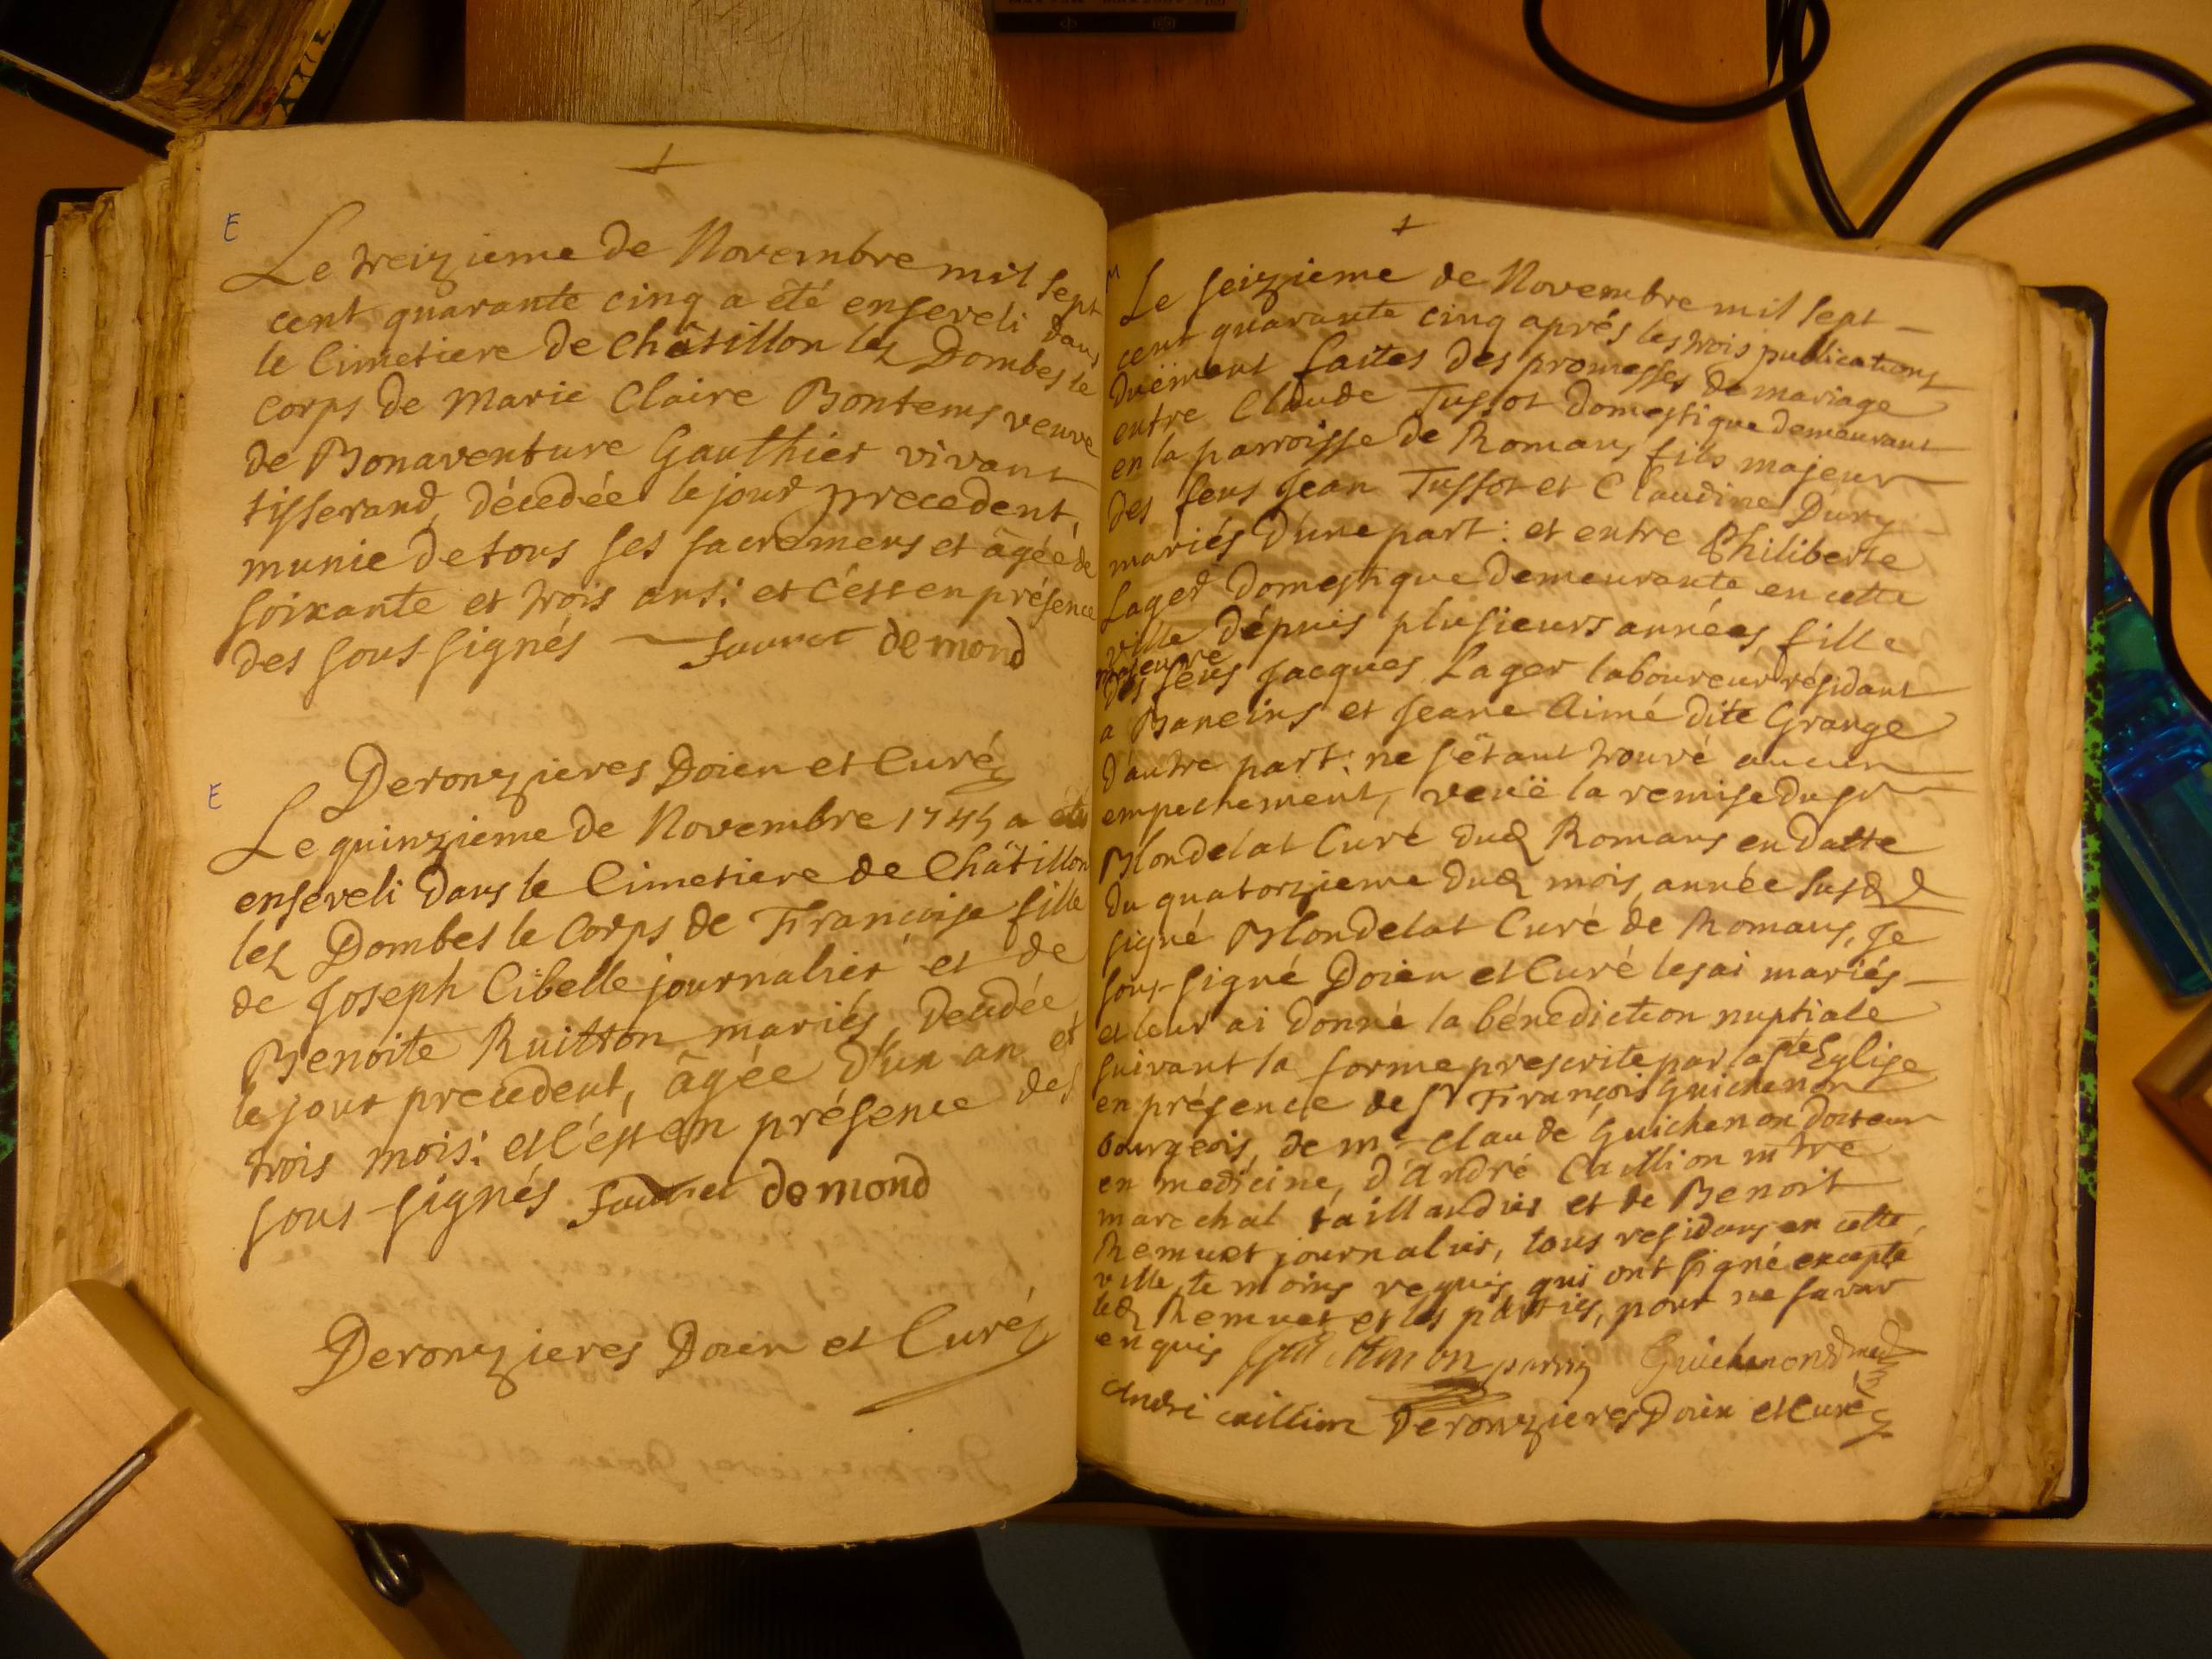 E
Le treizieme de Novembre mil sept
cent quarante cinq a été enseveli dans
le Cimetiere de Châtillon lez Dombes le
corps de Marie Claire Bontems veuve
de Bonaventure Gauthier vivant
tisserand, décedée le jour precedent,
munie de tous ses sacremens et âgée de
soixante et trois ans: et c'est en présence
des sous-signés demond
Deronzieres Doien et Curé
E
Le quinzieme de Novembre 1745 a été
enseveli dans le Cimetiere de Châtillon
lez Dombes le Corps de Françoise fille
de Joseph Cibelle journalier et de
Benoite Ruitton mariés, decedée
le jour precedent, âgée d'un an et
trois mois: et c'est en présence des
sous-signés demond
Deronzieres Doien et Curé
M
Le seizieme de Novembre mil sept
cent quarante cinq aprés les trois publications
duëment faites des promesses de mariage
entre Claude Tussot domestique demeurant
en la parroisse de Romans, fils majeur
des feus Jean Tussot et Claudine Dury
mariés d'une part: et entre Philiberte
Lager domestique demeurante en cette
ville dépuis plusieurs années, fille
majeure
des feus Jacques Lager laboureur résidant
a Baneins et Jeane Aimé dite Grange
d'autre part: ne s'étant trouvé aucun
empechement, veuë la remise du sr
Blondelat Curé dud Romans en datte
du quatorzieme dud mois, année susd &
signé Blondelat Curé de Romans, Je
sous-signé Doien et Curé les ai mariés
et leur ai donné la bénediction nuptiale
suivant la forme prescrite par la ste Eglise
en présence de sr François Guichenon
bourgeois, de mr Claude Guichenon docteur
en medicine, d'André Caillion mtre
marechal taillandier et de Benoit
Remuet journalier, tous residans en cette
ville, temoins requis, qui ont signé excepté
led Remuet et les parties, pour ne savoir
enquis Guichenon Guichenon d med
André caillion Deronzieres Doien et Curé